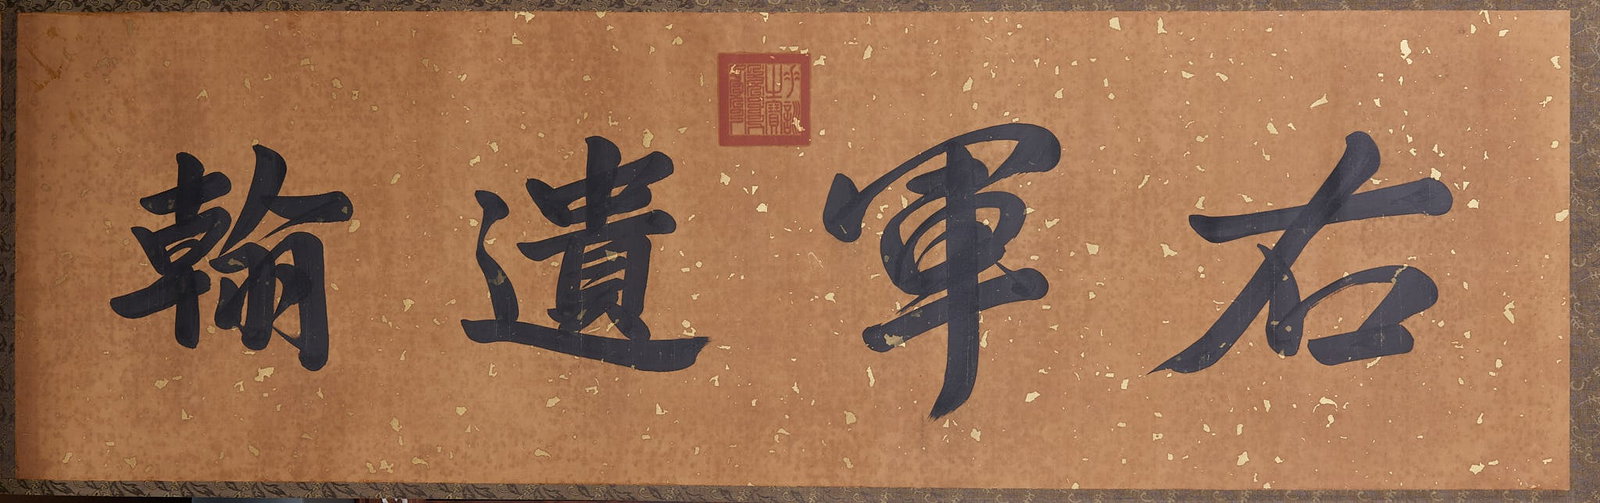 右軍遺翰